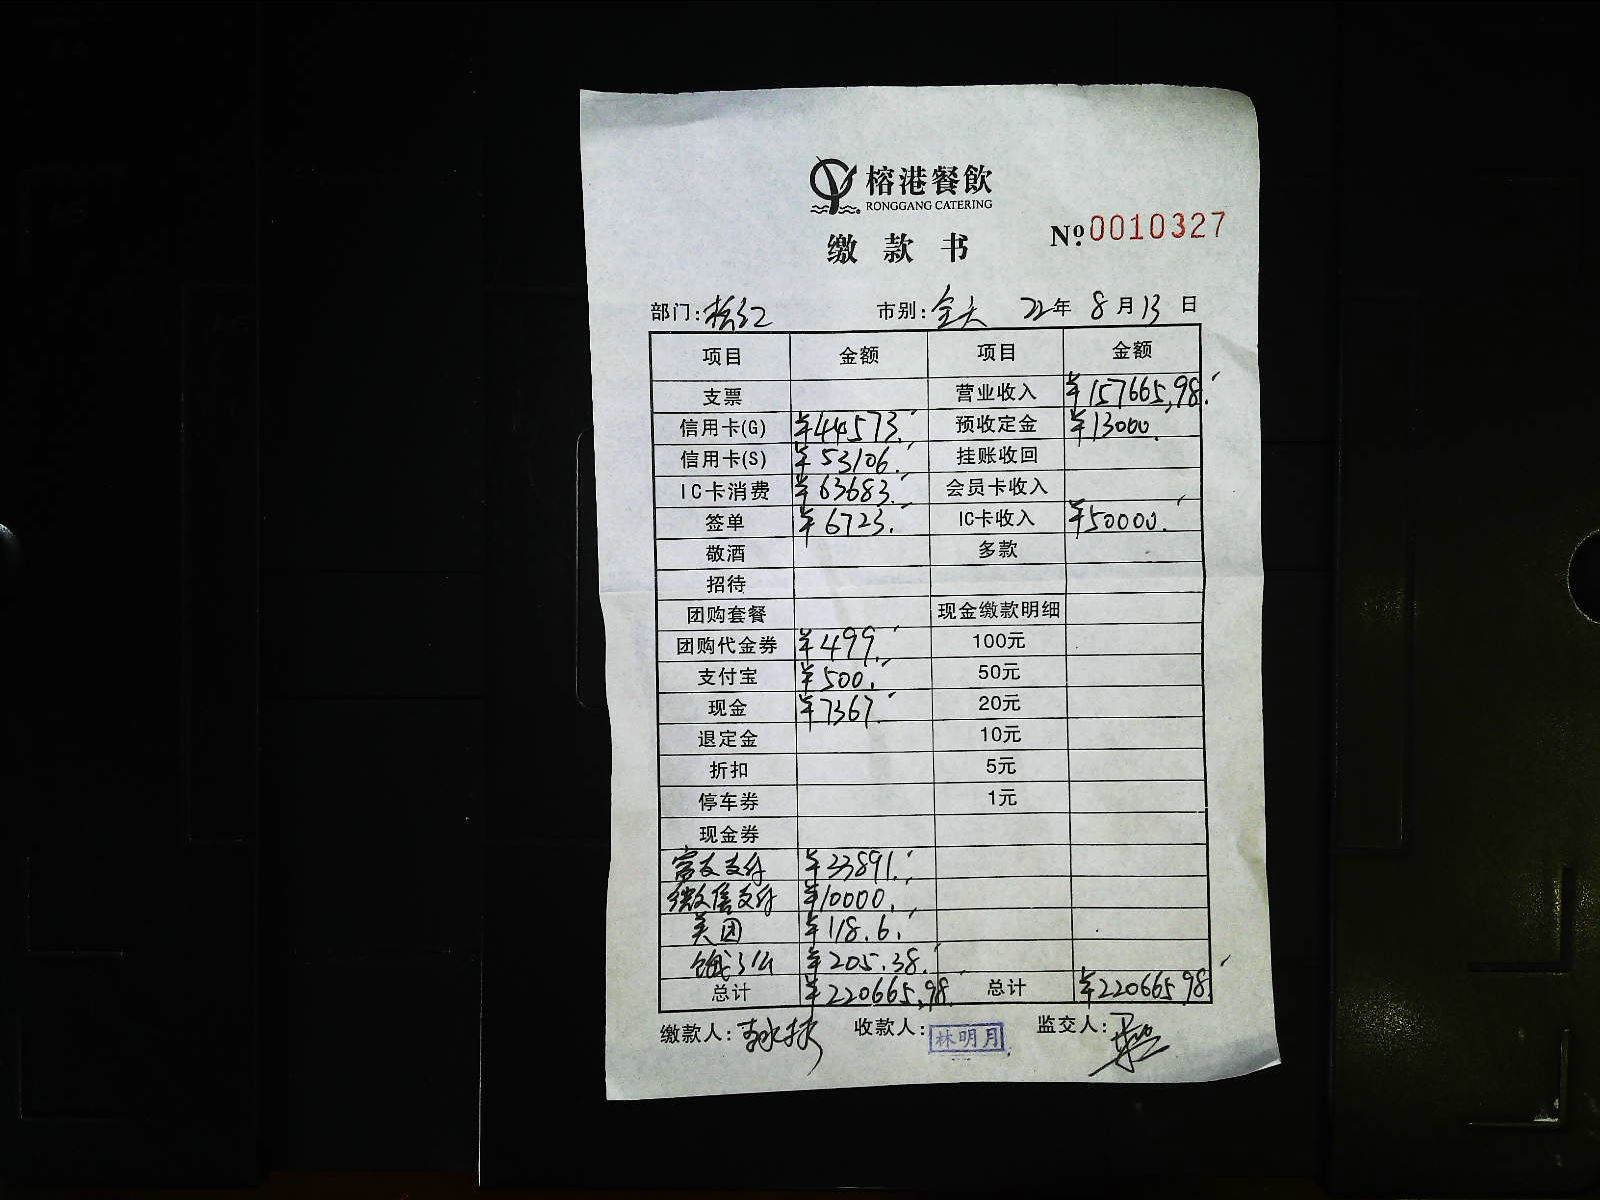 榕港餐飲
RONGGANG CATERING
缴款书 №0010327
部门: 市别:全天 22年 8月13日
项目 金额 项目 金额
支票 营业收入 ¥157665.98
信用卡(G) ¥44573. 预收定金 ¥13000.
信用卡(S) ¥53106. 挂账收回
IC卡消费 ¥63683. 会员卡收入
签单 ¥6723. IC卡收入 ¥50000.
敬酒 多款
招待
团购套餐 现金缴款明细
团购代金券 ¥499. 100元
支付宝 ¥500. 50元
现金 ¥7367. 20元
退定金 10元
折扣 5元
停车券 1元
现金券
富友支付 ¥33891.
微信支付 ¥10000.
美团 ¥118.6.
饿了么 ¥205.38.
总计 ¥220665.98 总计 ¥220665.98
缴款人: 收款人:林明月 监交人: